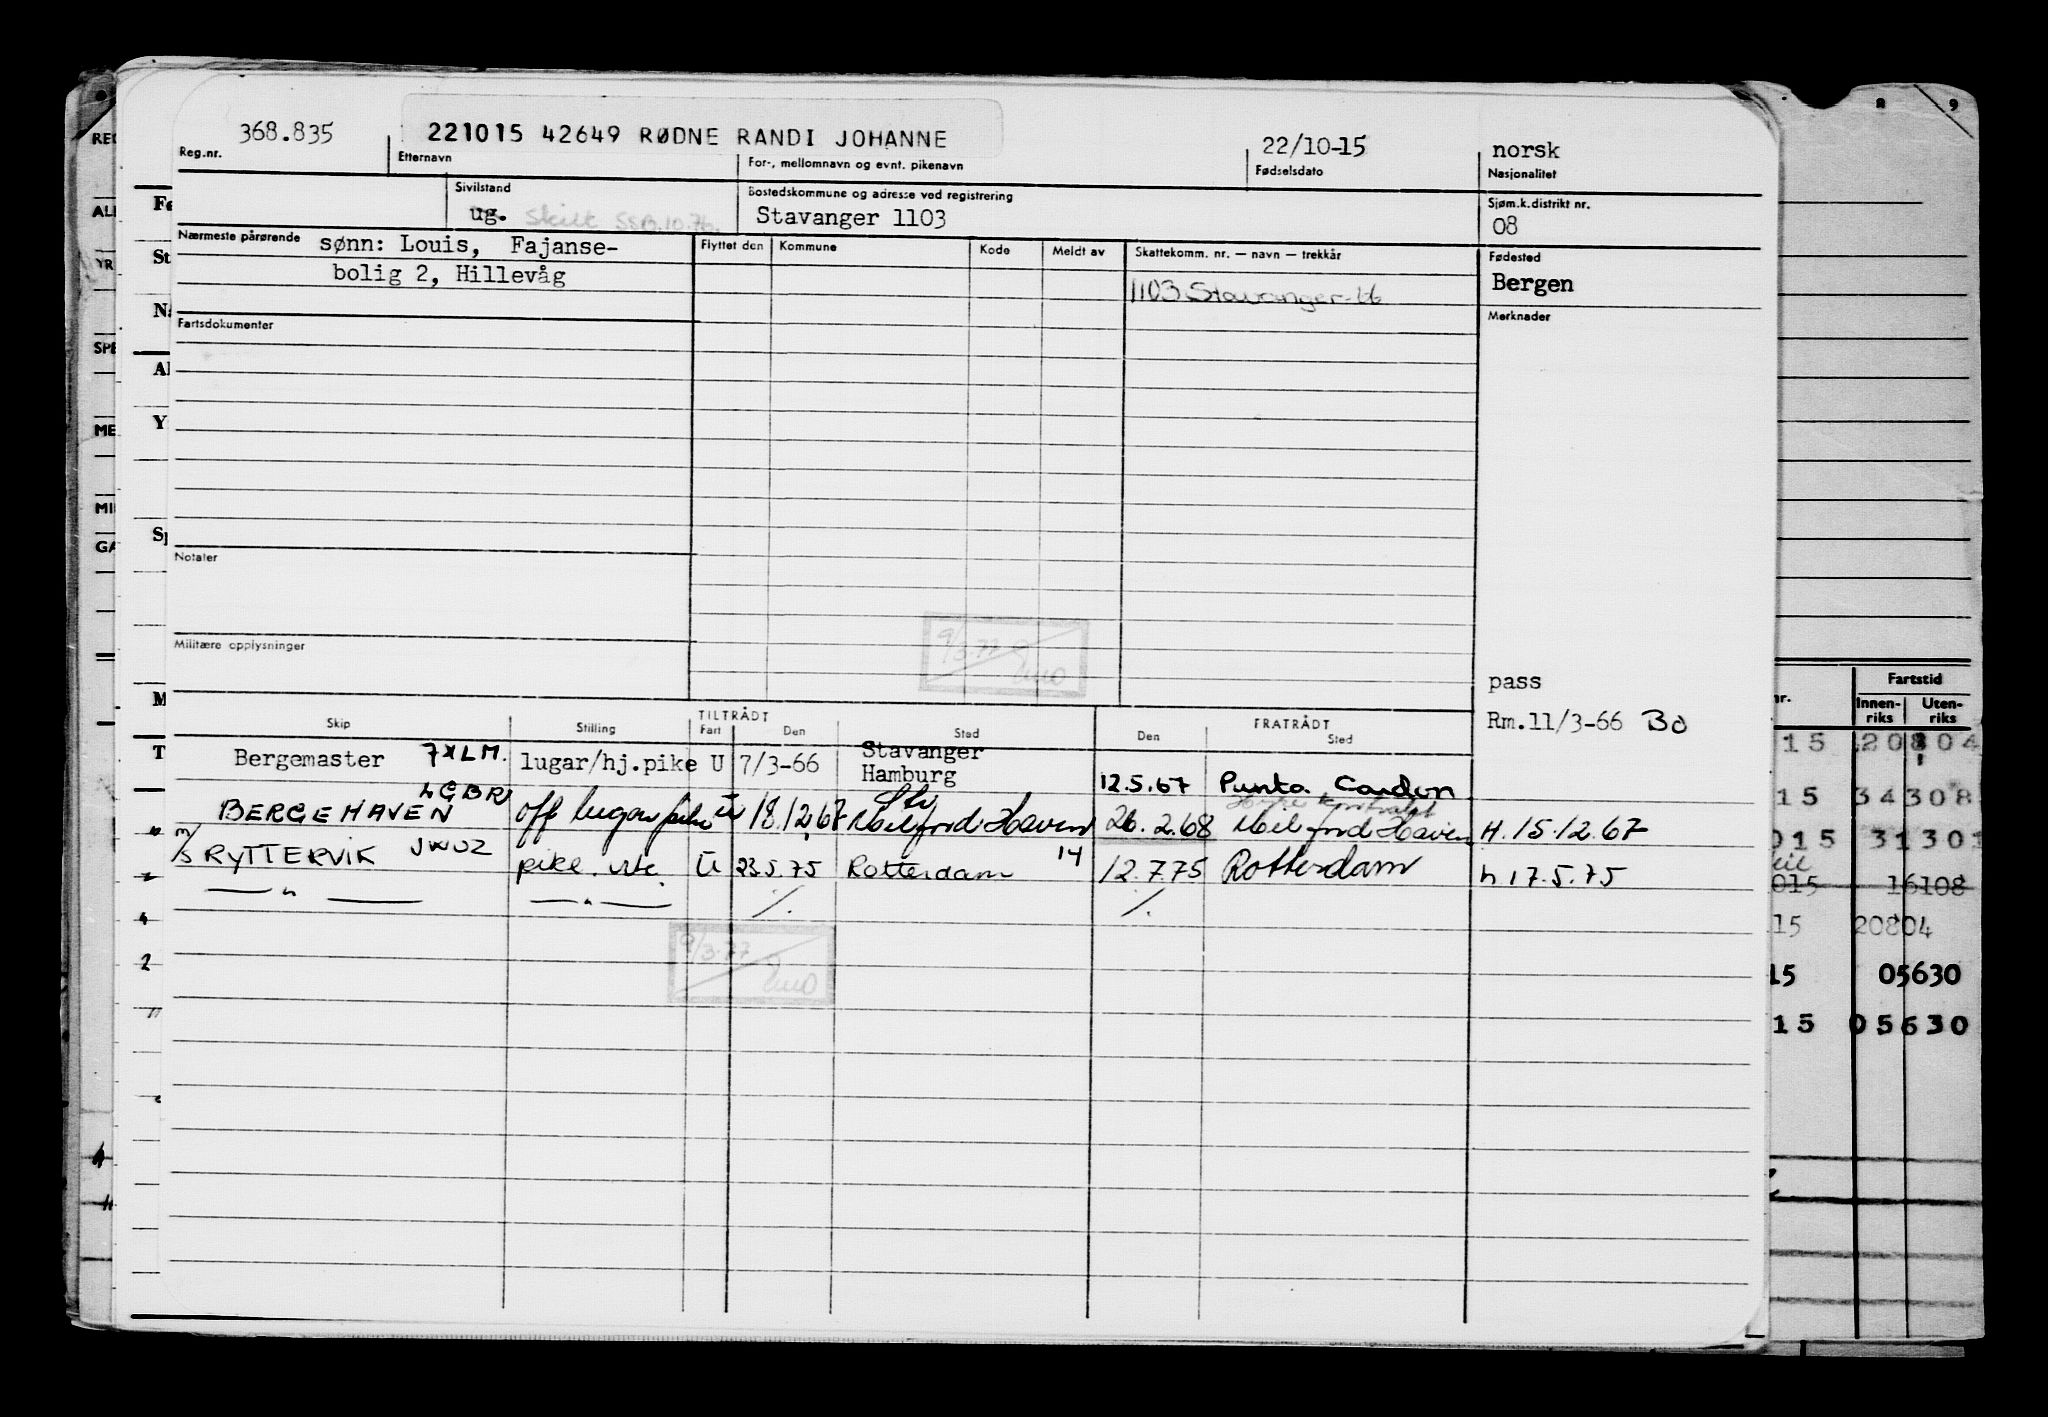 368.835 221015 42649 RØDNE RANDI JOHANNE 22/10-15 norsk
Reg.nr. Etternavn For-, mellomnavn og evnt. pikenavn Fødselsdato Nasjonalitet
Sivilstand Bostedskommune og adresse ved registrering Sjøm.k.distrikt nr.
ug. Skilt SSB.10.76. Stavanger 1103 08
Nærmeste pårørende sønn: Louis, Fajanse-
bolig 2, Hillevåg
Flyttet den Kommune Kode Meldt av Skattekomm. nr. — navn — trekkår Fødested
1103 Stavanger-66 Bergen
Fartsdokumenter Merknader
Notater
9/3.77
Militære opplysninger
pass
Rm.11/3-66 BO
TILTRÅDT FRATRÅDT
Skip Stilling Fart Den Sted Den Sted
Bergemaster 7XLM. lugar/hj.pike U 7/3-66 Stavanger
Hamburg 12.5.67 Punta Cardon
BERGEHAVEN LGBR off lugarpike U 18.12.67 Milford Haven 26.2.68 Milford Haven H.15.12.67
M/S RYTTERVIK JWUZ pike. U 23.5.75 Rotterdam 14 12.7.75 Rotterdam h 17.5.75
— " — — " — /. /.
9/3.77
8 9
REG
ALM
SPE
ME
MI
GA
Fartstid
nr. Innen-riks Uten-riks
15 20804
15 34308
015 31301
015 16108
15 20804
15 05630
15 05630